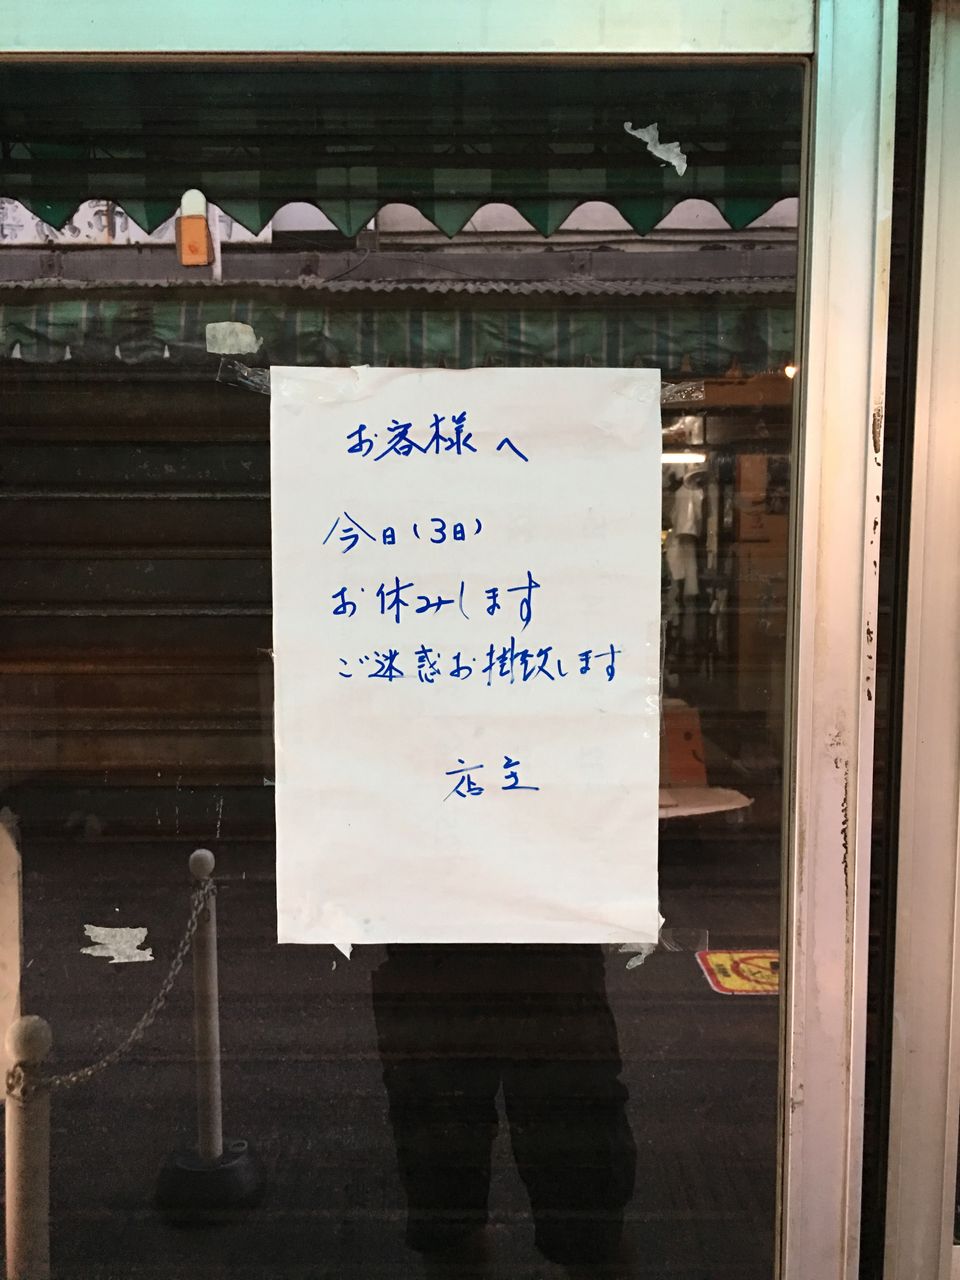 お客様へ
今日(3日)
お休みします
ご迷惑お掛致します
店主